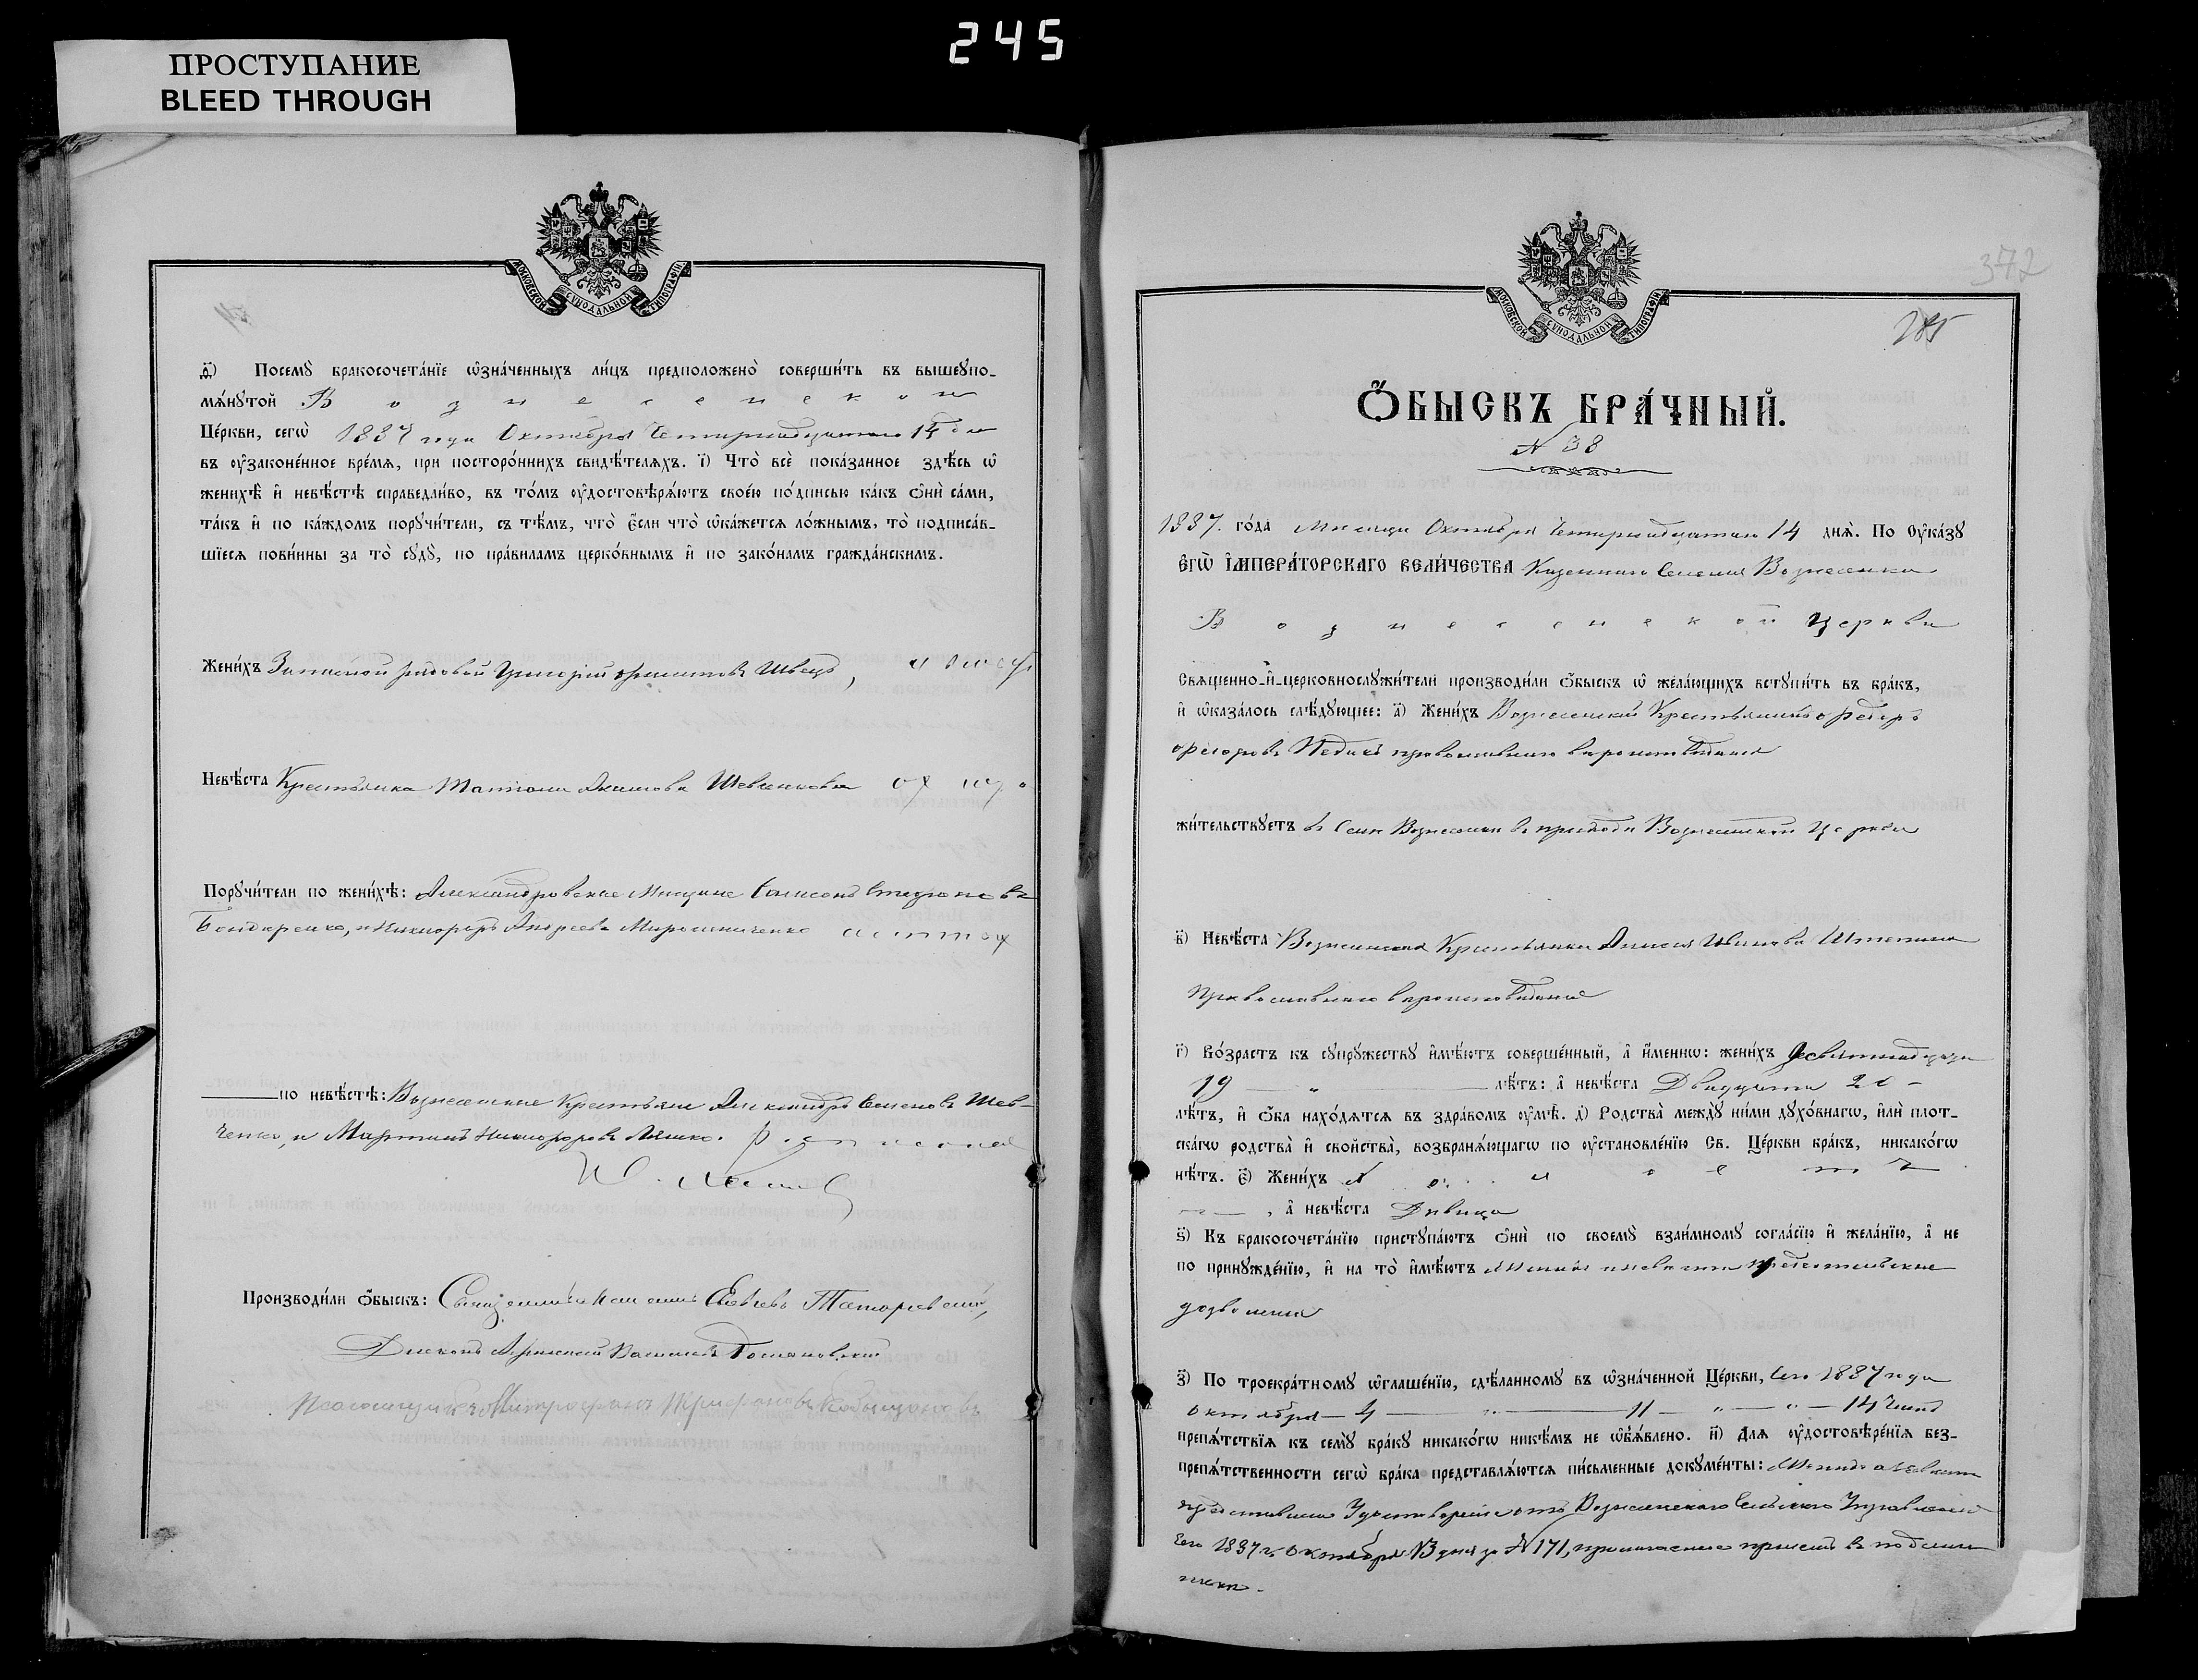 245
ПРОСТУПАНИЕ
BLEED THROUGH
МОСКОВСКОЙ СѴНОДАЛЬНОЙ ТИПОГРАФІИ
ѳ҃) Посемꙋ̀ бракосочета́нїе ѡ҆зна́ченныхъ ли́цъ предположено̀ соверши́ть въ вышеꙋпо-
мѧ́нꙋтой Вознесенской
Це́ркви, сегѡ̀ 1887 года Октября Четырнадцатаго 14 дня
въ ᲂу҆законе́нное вре́мѧ, при посторо́ннихъ свидѣ́телѧхъ. і҃) Что̀ всѐ пока́занное здѣ́сь ѡ҆
женихѣ̀ и҆ невѣ́стѣ справедли́во, въ то́мъ ᲂу҆достовѣрѧ́ютъ свое́ю по́дписью ка́къ ѻ҆нѝ са́ми,
та́къ и҆ по ка́ждомъ порꙋчи́тели, съ тѣ́мъ, что̀ є҆́сли что̀ ѡ҆ка́жетсѧ ло́жнымъ, то̀ подписа́в-
шїесѧ пови́нны за то̀ сꙋдꙋ̀, по пра́виламъ церко́внымъ и҆ по зако́намъ гражда́нскимъ.
Жени́хъ Запасной рядовой Григорій Швецъ,
Невѣ́ста Крестьянка Татіана Акимова Шевченкова
Порꙋчи́тели по женихѣ̀: Александровскіе Мѣщане Самсонъ Стефановъ
Бондаренко, и Никифоръ Андреевъ Мирошниченко
по невѣ́стѣ: Вознесенскіе Крестьяне Александръ Семеновъ Шев-
ченко, и Мартинъ Никифоровъ Ляшко.
Производи́ли ѻ҆́быскъ: Священникъ
Діаконъ
Псаломщикъ Митрофанъ Трифоновъ
372
285
Ѻ҆́БЫСКЪ БРА́ЧНЫЙ.
№ 38
1887. го́да Мѣсяца Октября Четырнадцатаго 14 днѧ̀. По ᲂу҆ка́зꙋ
Є҆ГѠ̀ И҆МПЕРА́ТОРСКАГО ВЕЛИ́ЧЕСТВА Казеннаго Селенія Вознесенки
Вознесенской Церкви
Свѧще́нно-и҆-церковнослꙋжи́тели производи́ли ѻ҆́быскъ ѡ҆ жела́ющихъ встꙋпи́ть въ бра́къ,
и҆ ѡ҆каза́лось слѣ́дꙋющее: а҃) Жени́хъ Вознесенскій Крестьянинъ Федоръ
православнаго вѣроисповѣданія
жи́тельствꙋетъ въ Селѣ Вознесенки въ приходѣ Вознесенской Церкви
в҃) Невѣ́ста Вознесенская Крестьянка Анисія Иванова
Православнаго вѣроисповѣданія
г҃) Во́зрастъ къ сꙋпрꙋ́жествꙋ и҆мѣ́ютъ соверше́нный, а҆ и҆́меннѡ: жени́хъ Девятнадцать
19 — „ — лѣ́тъ: а҆ невѣ́ста Двадцати 20 –
лѣ́тъ, и҆ ѻ҆́ба нахо́дѧтсѧ въ здра́вомъ ᲂу҆мѣ̀. д҃) Родства̀ междꙋ̀ ни́ми дꙋхо́внагѡ, и҆лѝ плот-
ска́гѡ родства̀ и҆ свойства̀, возбранѧ́ющагѡ по ᲂу҆становле́нїю Св. Це́ркви бра́къ, никако́гѡ
нѣ́тъ. є҃) Жени́хъ холостъ
, а҆ невѣ́ста Дѣвица
ѕ҃) Къ бракосочета́нїю пристꙋпа́ютъ ѻ҆нѝ по своемꙋ̀ взаи́мномꙋ согла́сїю и҆ жела́нїю, а҆ не
по принꙋжде́нїю, и҆ на то̀ и҆мѣ́ютъ Женихъ и невѣста родительскіе
дозволенія
з҃) По троекра́тномꙋ ѡ҆глаше́нїю, сдѣ́ланномꙋ въ ѡ҆зна́ченной Це́ркви, Сего 1887 года
октября — 4 — „ — 11 — „ — „ — 14 чиселъ
препѧ́тствїѧ къ семꙋ̀ бра́кꙋ никако́гѡ никѣ́мъ не ѡ҆б̾ѧ́влено. и҃) Длѧ ᲂу҆достовѣре́нїѧ без-
препѧ́тственности сегѡ̀ бра́ка представлѧ́ютсѧ пи́сьменные докꙋме́нты: Женихъ и невѣста
представили Удостовѣреніе отъ Вознесенскаго Сельскаго Управленія
Сего 1887 г. Октября 13 дня за № 171, прилагаемое при семъ въ подлин-
никѣ.